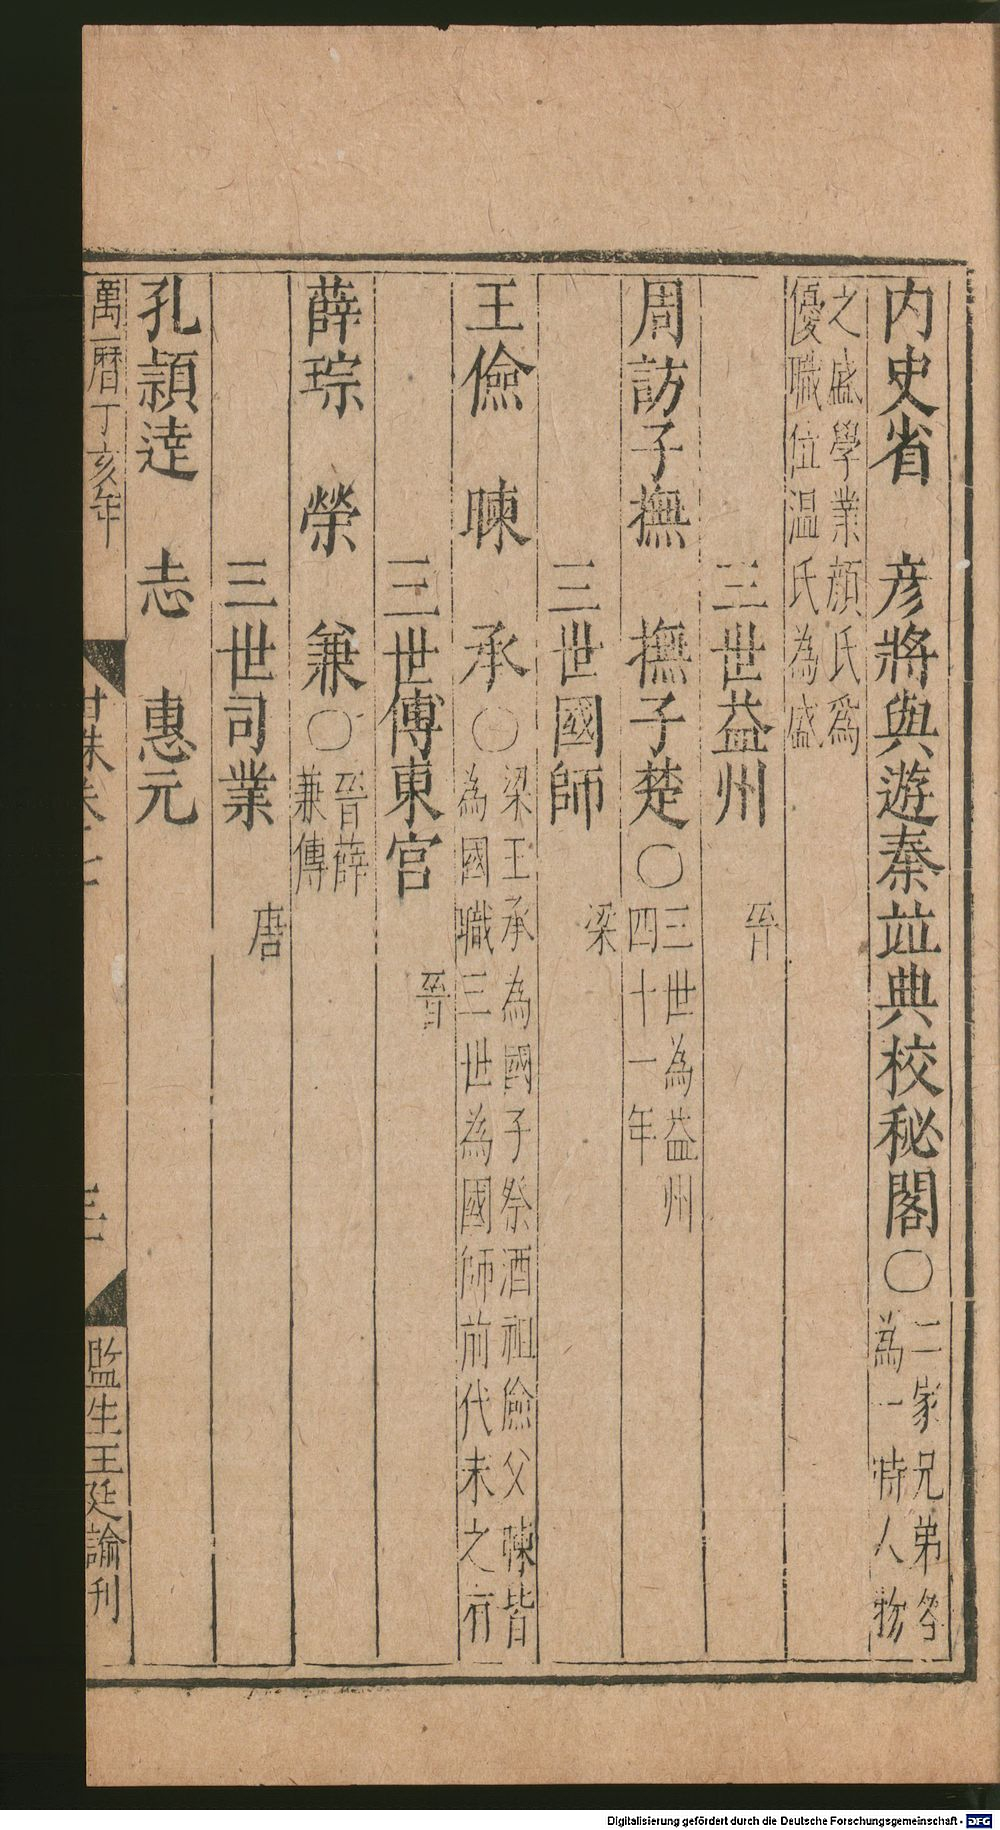 内史省 彦將與遊秦並典校秘閣〇二家兄弟各
為一時人物
之盛學業顔氏爲
優職位温氏為盛
三世益州 晉
周訪子撫 撫子楚〇三世為益州
四十一年
三世國師 梁
王儉 暕 承〇梁王承為國子祭酒祖儉父暕皆
為國職三世為國師前代未之有
三世傅東宫 晉
薛琮 榮 兼〇晉薛
兼傅
三世司業 唐
孔穎達 志 惠元
萬曆丁亥年
監生王廷諭刊
Digitalisierung gefördert durch die Deutsche Forschungsgemeinschaft - DFG